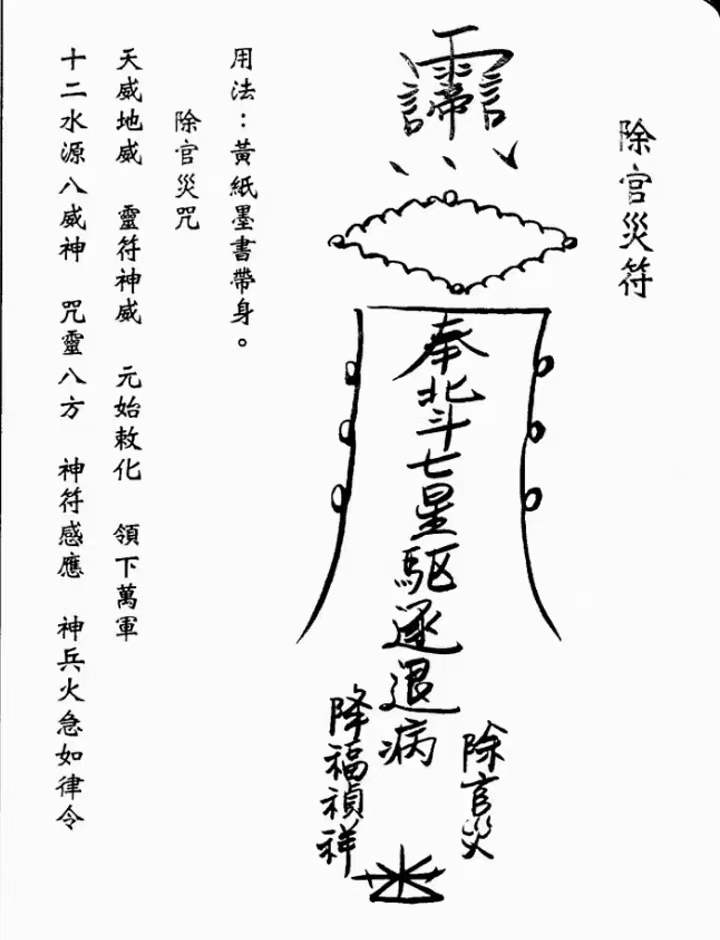 除官災符
奉北斗七星驅逐退病
除官災
降福禎祥
用法：黃紙墨書帶身。
除官災咒
天威地威　靈符神威　元始敕化　領下萬軍
十二水源八威神　咒靈八方　神符感應　神兵火急如律令